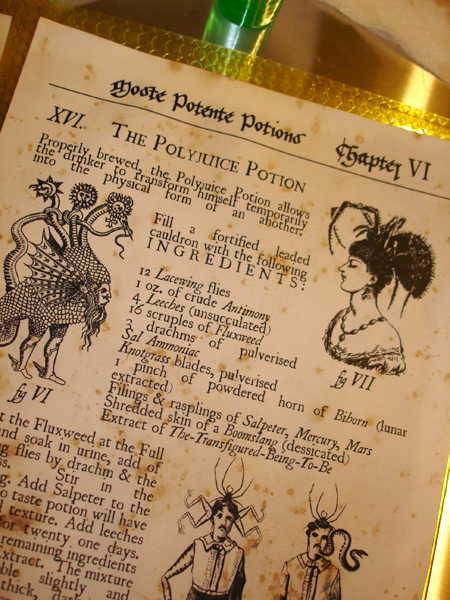 Moste Potente Potions
Chapter VI
XVI. THE POLYJUICE POTION
Properly brewed, the Polyjuice Potion allows
the drinker to transform himself temporarily
into the physical form of an another.
Fill a fortified leaded
cauldron with the following
INGREDIENTS:
12 Lacewing flies
1 oz. of crude Antimony
4 Leeches (unsucculated)
16 scruples of Fluxweed
3 drachms of pulverised
Sal Ammoniac
Knotgrass blades, pulverised
1 pinch of powdered horn of Bihorn (lunar
extracted)
Filings & rasplings of Salpeter, Mercury, Mars
Shredded skin of a Boomslang (dessicated)
Extract of The-Transfigured-Being-To-Be
fig VI
fig VII
t the Fluxweed at the Full
nd soak in urine, add of
g flies by drachm & the
s. Stir in the
g. Add Salpeter to the
o taste potion will have
texture. Add leeches
or twenty one days.
remaining ingredients
Extract. The mixture
ble slightly and
thick, dark